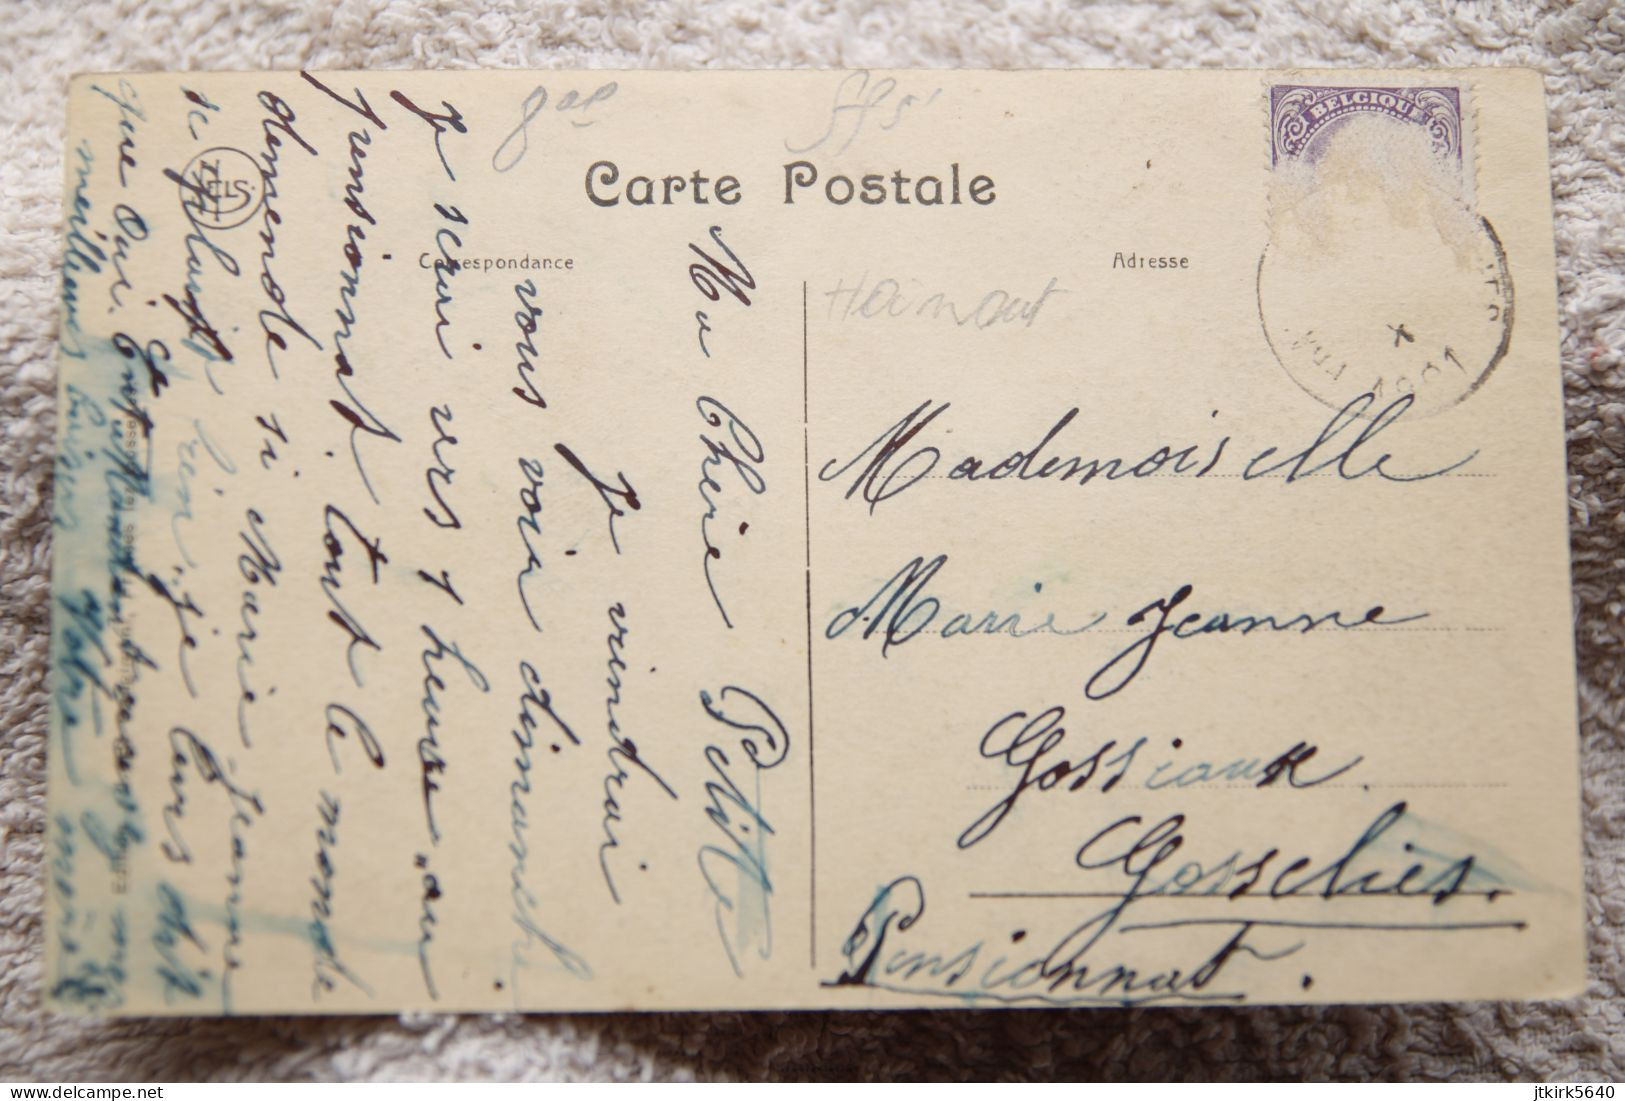 Carte Postale
Correspondance
Adresse
BELGIQUE
NELS
Hainaut
Ma Chère Petite
Je viendrai
vous voir dimanche
Je serai vers 1 heure au
pensionnat. tout le monde
demende si Marie Jeanne
se plait bien, je leurs dit
que Oui.
meilleurs baisers Votre
Mademoiselle
Marie Jeanne
Gossiaux
Gosselies.
Pensionnat.
jtkirk5640